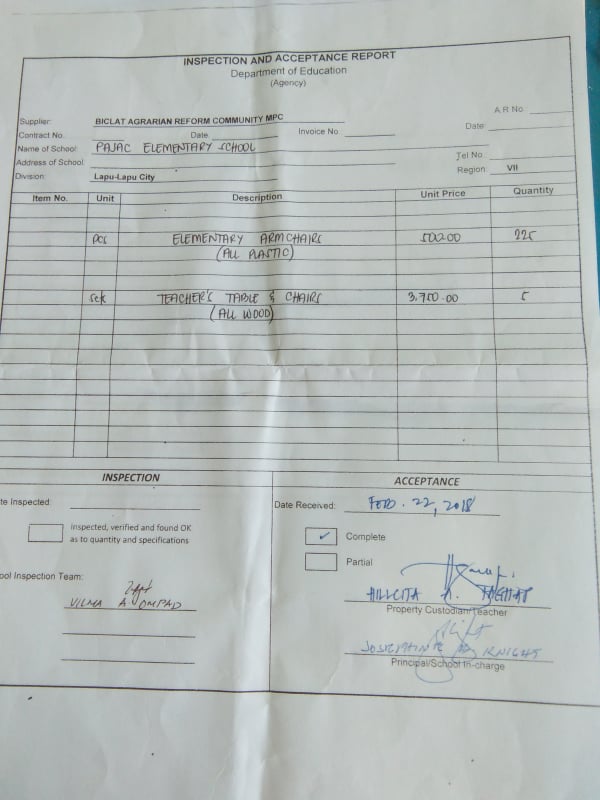 INSPECTION AND ACCEPTANCE REPORT
Department of Education
(Agency)
A.R No.
Supplier: BICLAT AGRARIAN REFORM COMMUNITY MPC
Contract No. Date Invoice No. Date:
Name of School: PAJAC ELEMENTARY SCHOOL
Address of School: Tel No.
Division: Lapu-Lapu City Region: VII
Item No. Unit Description Unit Price Quantity
pcs ELEMENTARY ARMCHAIRS 500.00 225
(ALL PLASTIC)
set TEACHER'S TABLE & CHAIRS 3,750.00 5
(ALL WOOD)
INSPECTION
te Inspected:
Inspected, verified and found OK
as to quantity and specifications
ool Inspection Team:
VILMA A. OMPAD
ACCEPTANCE
Date Received: FEB. 22, 2018
Complete
Partial
Property Custodian/Teacher
KNIGHT
Principal/School In-charge